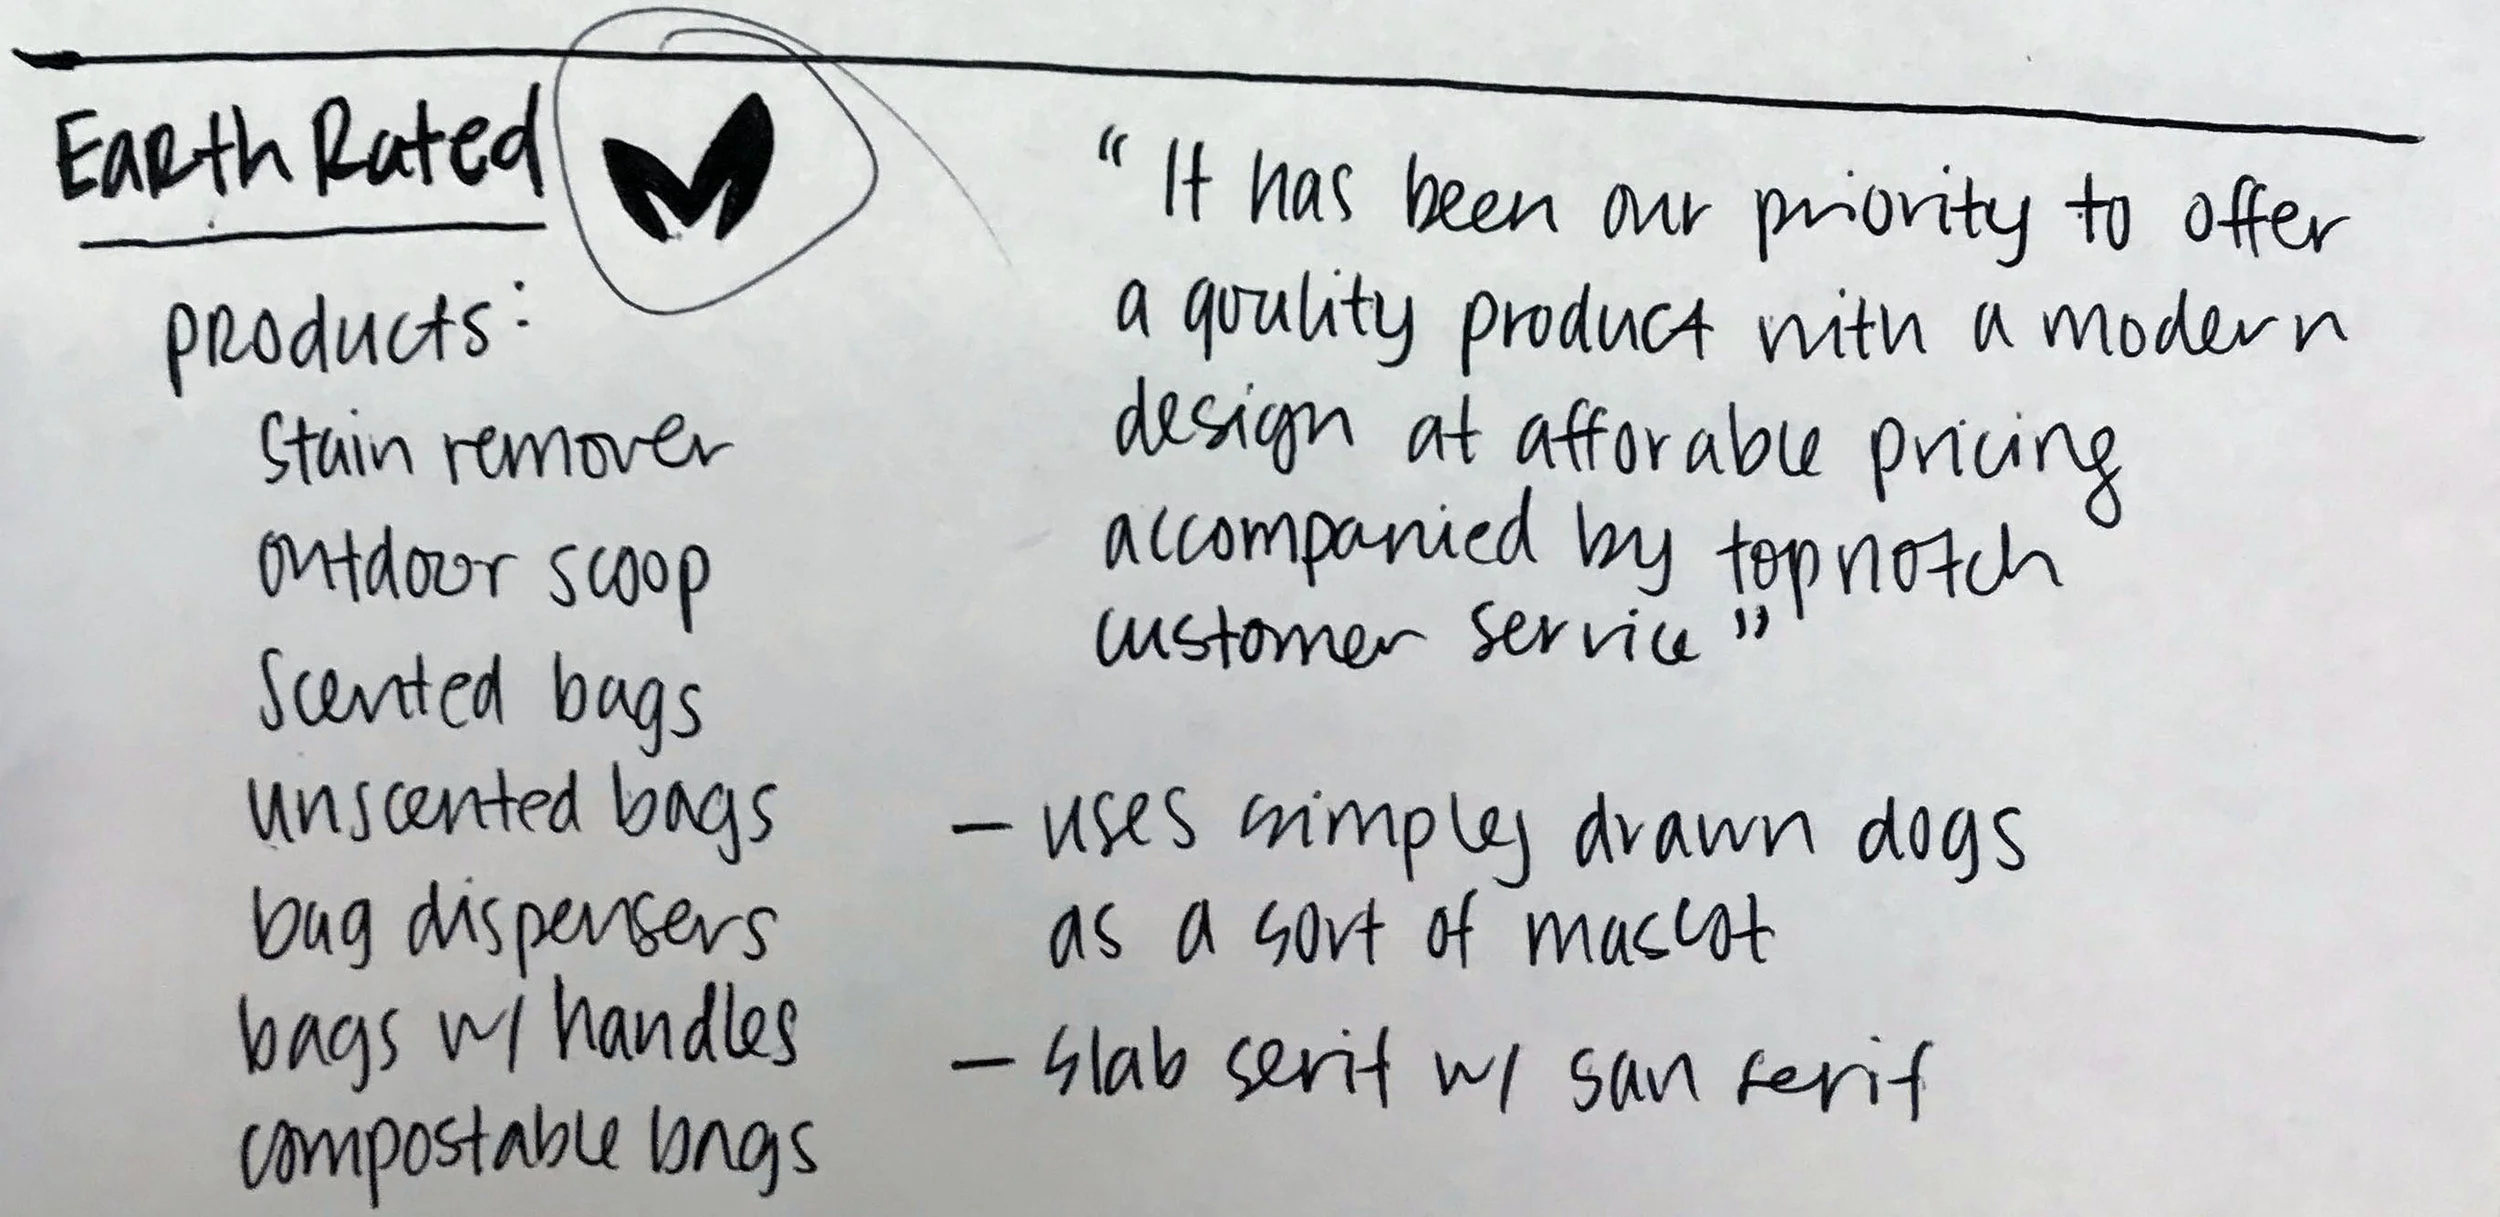 Earth Rated
products:
stain remover
outdoor scoop
scented bags
unscented bags
bag dispensers
bags w/ handles
compostable bags
"It has been our priority to offer
a quality product with a modern
design at afforable pricing
accompanied by topnotch
customer service"
- uses simpley drawn dogs
as a sort of mascot
- slab serif w/ san serif